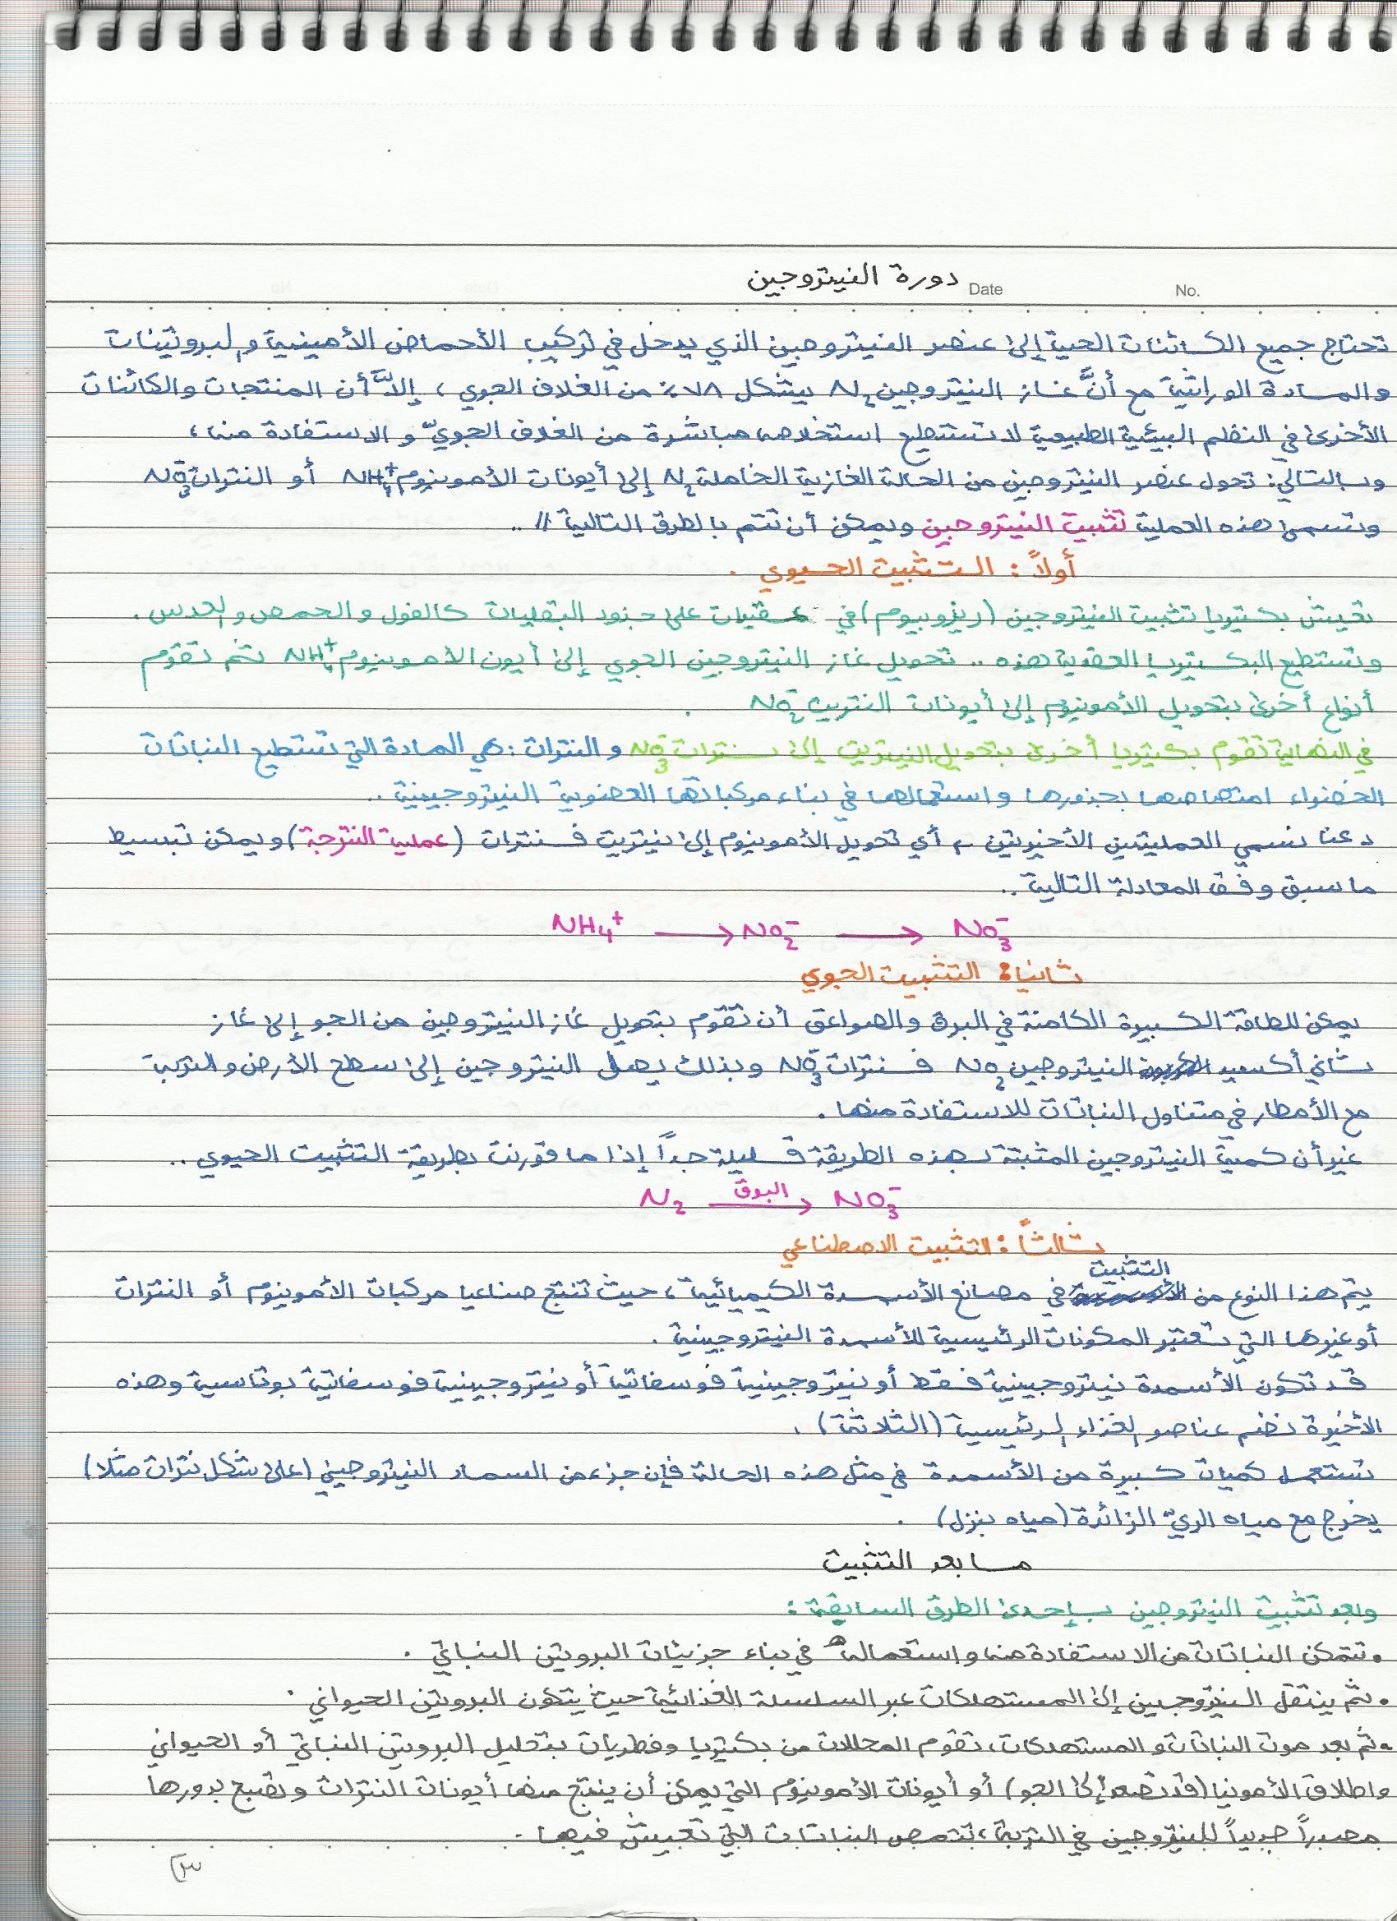 دورة النيتروجين
Date
No.
تحتاج جميع الكائنات الحية إلى عنصر النيتروجين الذي يدخل في تركيب الأحماض الأمينية والبروتينات
والمادة الوراثية مع أنَّ غاز النيتروجين N₂ يشكل ٧٨٪ من الغلاف الجوي ، إلاَّ أن المنتجات والكائنات
الأخرى في النظم البيئية الطبيعية لا تستطيع استخلاصه مباشرة من الغلاف الجويّ و الاستفادة منه ،
وبالتالي: تحول عنصر النيتروجين من الحالة الغازية الخاملة N₂ إلى أيونات الأمونيوم NH₄⁺ أو النترات NO₃⁻
وتسمى هذه العملية تثبيت النيتروجين ويمكن أن تتم بالطرق التالية // ..
أولاً : التثبيت الحيوي .
تعيش بكتيريا تثبيت النيتروجين (ريزوبيوم) في عقيدات على جذور البقليات كالفول والحمص والعدس .
وتستطيع البكتيريا العقدية هذه .. تحويل غاز النيتروجين الجوي إلى أيون الأمونيوم NH₄⁺ ثم تقوم
أنواع أخرى بتحويل الأمونيوم إلى أيونات النتريت NO₂⁻ .
في النهاية تقوم بكتيريا أخرى بتحويل النيتريت إلى نترات NO₃⁻ و النترات : هي المادة التي تستطيع النباتات
الخضراء امتصاصها بجذورها واستعمالها في بناء مركباتها العضوية النيتروجينية ..
دعنا نسمي العمليتين الأخيرتين ، أي تحويل الأمونيوم إلى نيتريت فنترات (عملية النترجة) ويمكن تبسيط
ما سبق وفق المعادلة التالية ..
NH₄⁺ ⟶ NO₂⁻ ⟶ NO₃⁻
ثانيا: التثبيت الجوي
يمكن للطاقة الكبيرة الكامنة في البرق والصواعق أن تقوم بتحويل غاز النيتروجين من الجو إلى غاز
ثاني أكسيد النيتروجين NO₂ فنترات NO₃⁻ وبذلك يصل النيتروجين إلى سطح الأرض والتربة
مع الأمطار في متناول النباتات للاستفادة منها .
غير أن كمية النيتروجين المثبتة بهذه الطريقة قليلة جداً إذا ما قورنت بطريقة التثبيت الحيوي ..
N₂ —البرق→ NO₃⁻
ثالثاً : التثبيت الاصطناعي
يتم هذا النوع من التثبيت في مصانع الأسمدة الكيميائية ، حيث تنتج صناعيا مركبات الأمونيوم أو النترات
أو غيرها التي تعتبر المكونات الرئيسية للأسمدة النيتروجينية .
قد تكون الأسمدة نيتروجينية فقط أو نيتروجينية فوسفاتية أو نيتروجينية فوسفاتية بوتاسية وهذه
الأخيرة تضم عناصر الغذاء الرئيسية (الثلاثة) .
تستعمل كميات كبيرة من الأسمدة في مثل هذه الحالة فإن جزء من السماد النيتروجيني (على شكل نترات مثلا)
يخرج مع مياه الريّ الزائدة (مياه بزل) .
ما بعد التثبيت
وبعد تثبيت النيتروجين بإحدى الطرق السابقة :
• تتمكن النباتات من الاستفادة منه واستعماله في بناء جزيئات البروتين النباتي .
• ثم ينتقل النيتروجين إلى المستهلكات عبر السلسلة الغذائية حيث يتكون البروتين الحيواني .
• ثم بعد موت النباتات و المستهلكات ، تقوم المحللات من بكتيريا وفطريات بتحليل البروتين النباتي أو الحيواني
واطلاق الأمونيا (قد تصعد إلى الجو) أو أيونات الأمونيوم التي يمكن أن ينتج منها أيونات النترات وتصبح بدورها
مصدراً جديداً للنيتروجين في التربة ، تمتصه النباتات التي تعيش فيها .